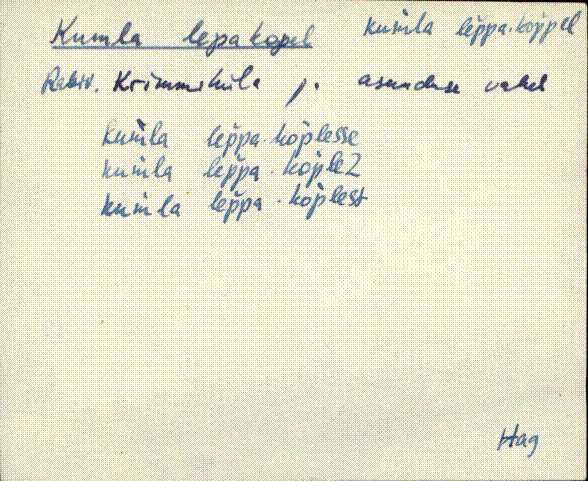 Kumla lepakopel kumla leppa-koppel
Rahv. Krimmiküla j. asunduse vahel
kumla leppa-koplesse
kumla leppa-kople2
kumla leppa-koplest
Hag